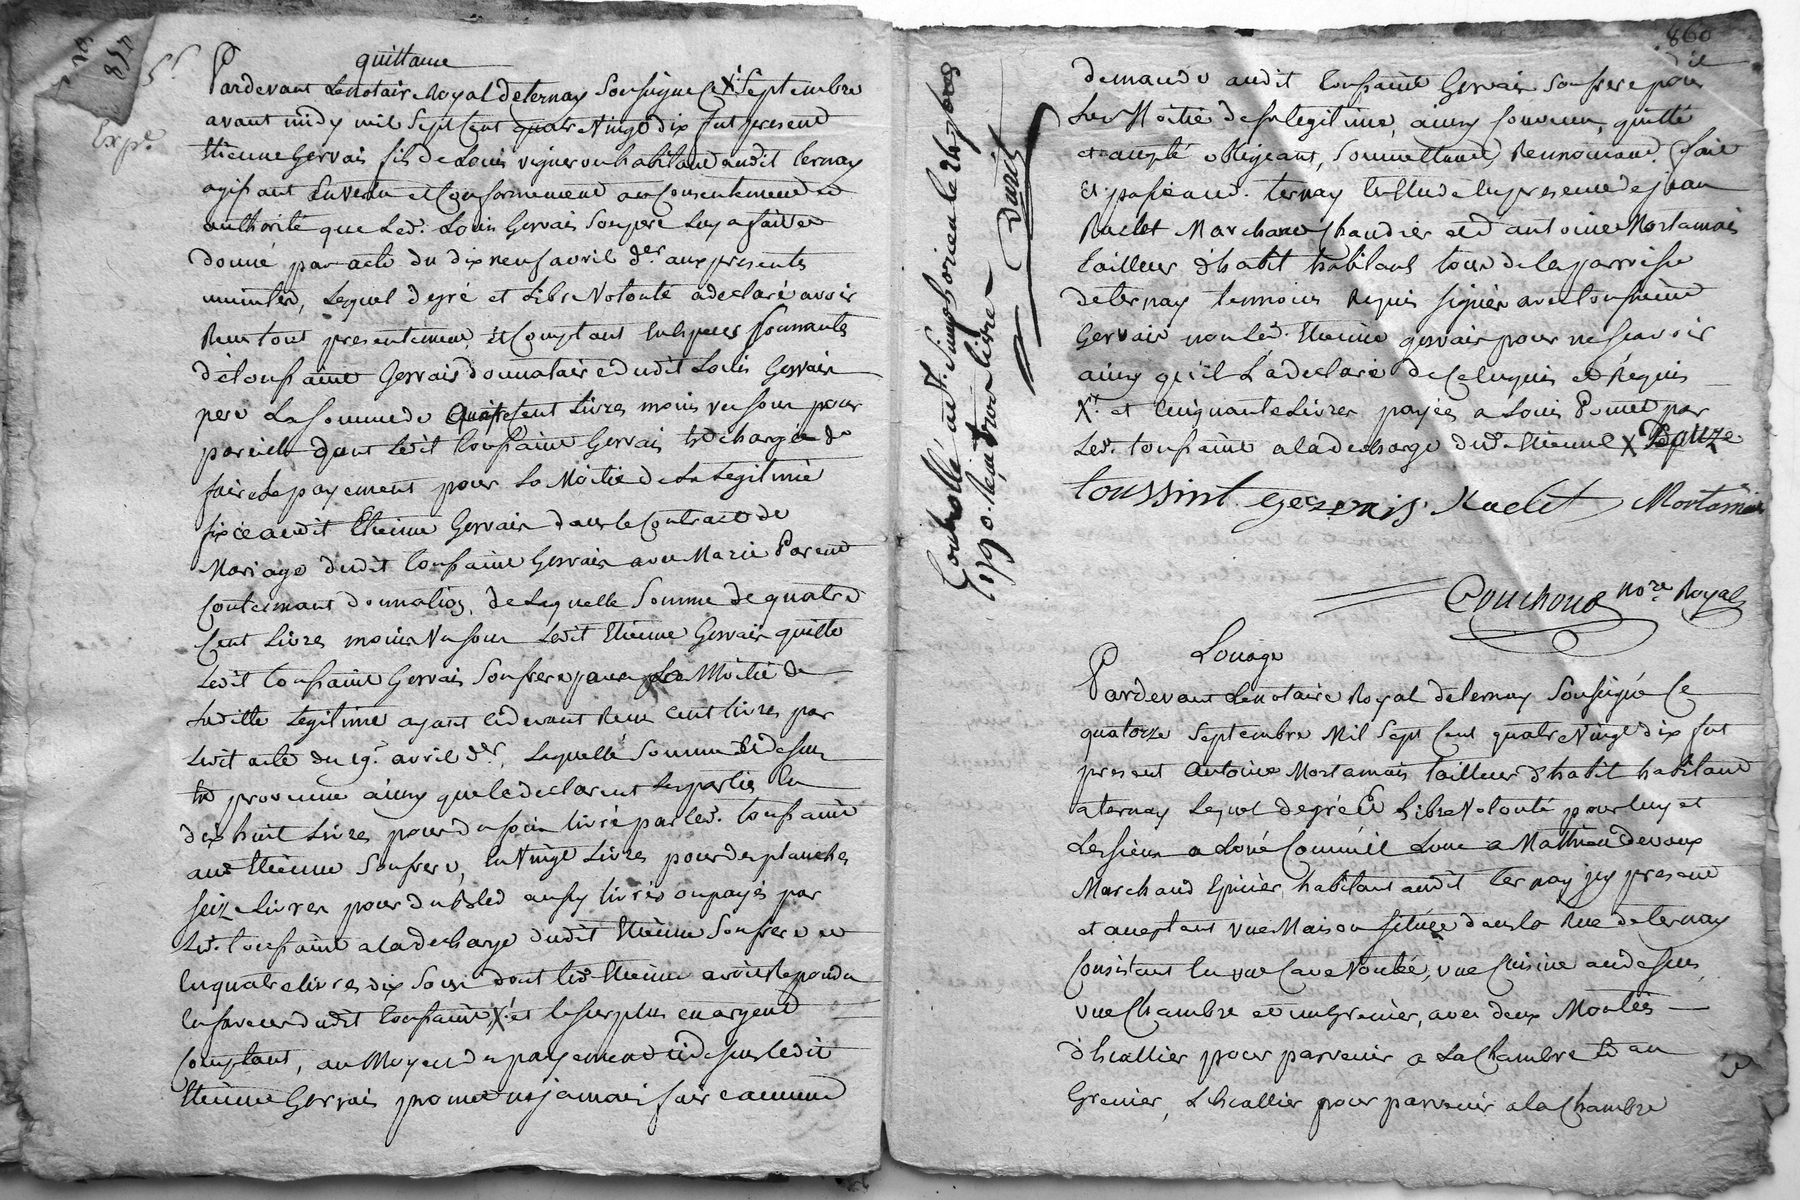 quittance
Pardevant Lenotaire Royal deternay Soussigné Ce X.e Septembre
avant midy mil Sept Cent quatre Vingt dix fut present
Etienne Gervais fils de Louis vigneron habitant audit ternay
agissant En vertu et Conformement au Consentement et
authorité que Led. Louis Gervais Son pere Luy a fait et
donné par acte du dix neuf avril d.er aux presentes
minutes, Lequel de gré et Libre Volonté a declaré avoir
Reçu tout presentement et Comptant En Especes Sonnantes
de toussaint Gervais donnataire dudit Louis Gervais
pere La somme de quatre Cent Livres moins un sou pour
pareille dont Ledit toussaint Gervais Est chargé de
faire Le payement pour La Moitié de La Legitime
fixée audit Etienne Gervais dans le Contract de
Mariage dudit toussaint Gervais avec Marie Parent
Contenant donnation, de Laquelle Somme de quatre
Cent Livres moins un sou Ledit Etienne Gervais quitte
Ledit toussaint Gervais Son frere pour La Moitié de
Laditte Legitime ayant cidevant Reçu Cent Livres par
Ledit acte du 19.e avril d.er, Laquelle Somme Ci dessus
Est provenue ainsy que le declarent Les parties En
dix huit Livres pour du foin livré par led. toussaint
aud Etienne Son frere, En Vingt Livres pour des planches
seize Livres pour du bled aussy livrés ou payés par
Led. toussaint a la decharge dudit Etienne Son frere et
En quatre livres dix Sous dont led Etienne avoit Repondu
En faveur dudit toussaint, X.t et le surplus en argent
Comptant, au Moyen du payement ci dessus Ledit
Etienne Gervais promet ne jamais faire aucune
Exp.e
860
demande audit toussaint Gervais Son frere pour
La Moitié de sa legitime, ainsy Convenu, quitté
et accepté obligeant, Soumettant, Renoncant. fait
Et passé aud. ternay Etude En presence de jean
Raclet Marchand Chandier et d'antoine Mortamais
tailleur d'habit habitants tous de la parroisse
de ternay temoins Requis signés avec toussaint
Gervais non led. Etienne gervais pour ne scavoir
ainsy qu'il L'a declaré de Ce Enquis et Requis
X.t et Cinquante Livres payées a Louis par
Led. toussaint a la decharge dud. Etienne X
toussint gervais Raclet Mortamais
Couchoud no.re Royal
Controllé a S.t Simphorien le 24 7bre
1790. Reçu trois livres
Louage
Pardevant Le notaire Royal de ternay Soussigné Ce
quatorze Septembre Mil Sept Cent quatre Vingt dix fut
present Antoine Mortamais tailleur d'habit habitant
a ternay Lequel de gré Et Libre Volonté pour luy et
Les siens a Loué Comme il Loue a Mathieu Devaux
Marchand Epicier habitant audit Ternay jcy present
et acceptant une Maison située dans la Rue de ternay
Consistant En une Cave Voutée, une Cuisine au dessus,
une Chambre et un Grenier, avec deux Montées
d'Escallier pour parvenir a La Chambre et au
Grenier, L'Escallier pour parvenir a la Chambre